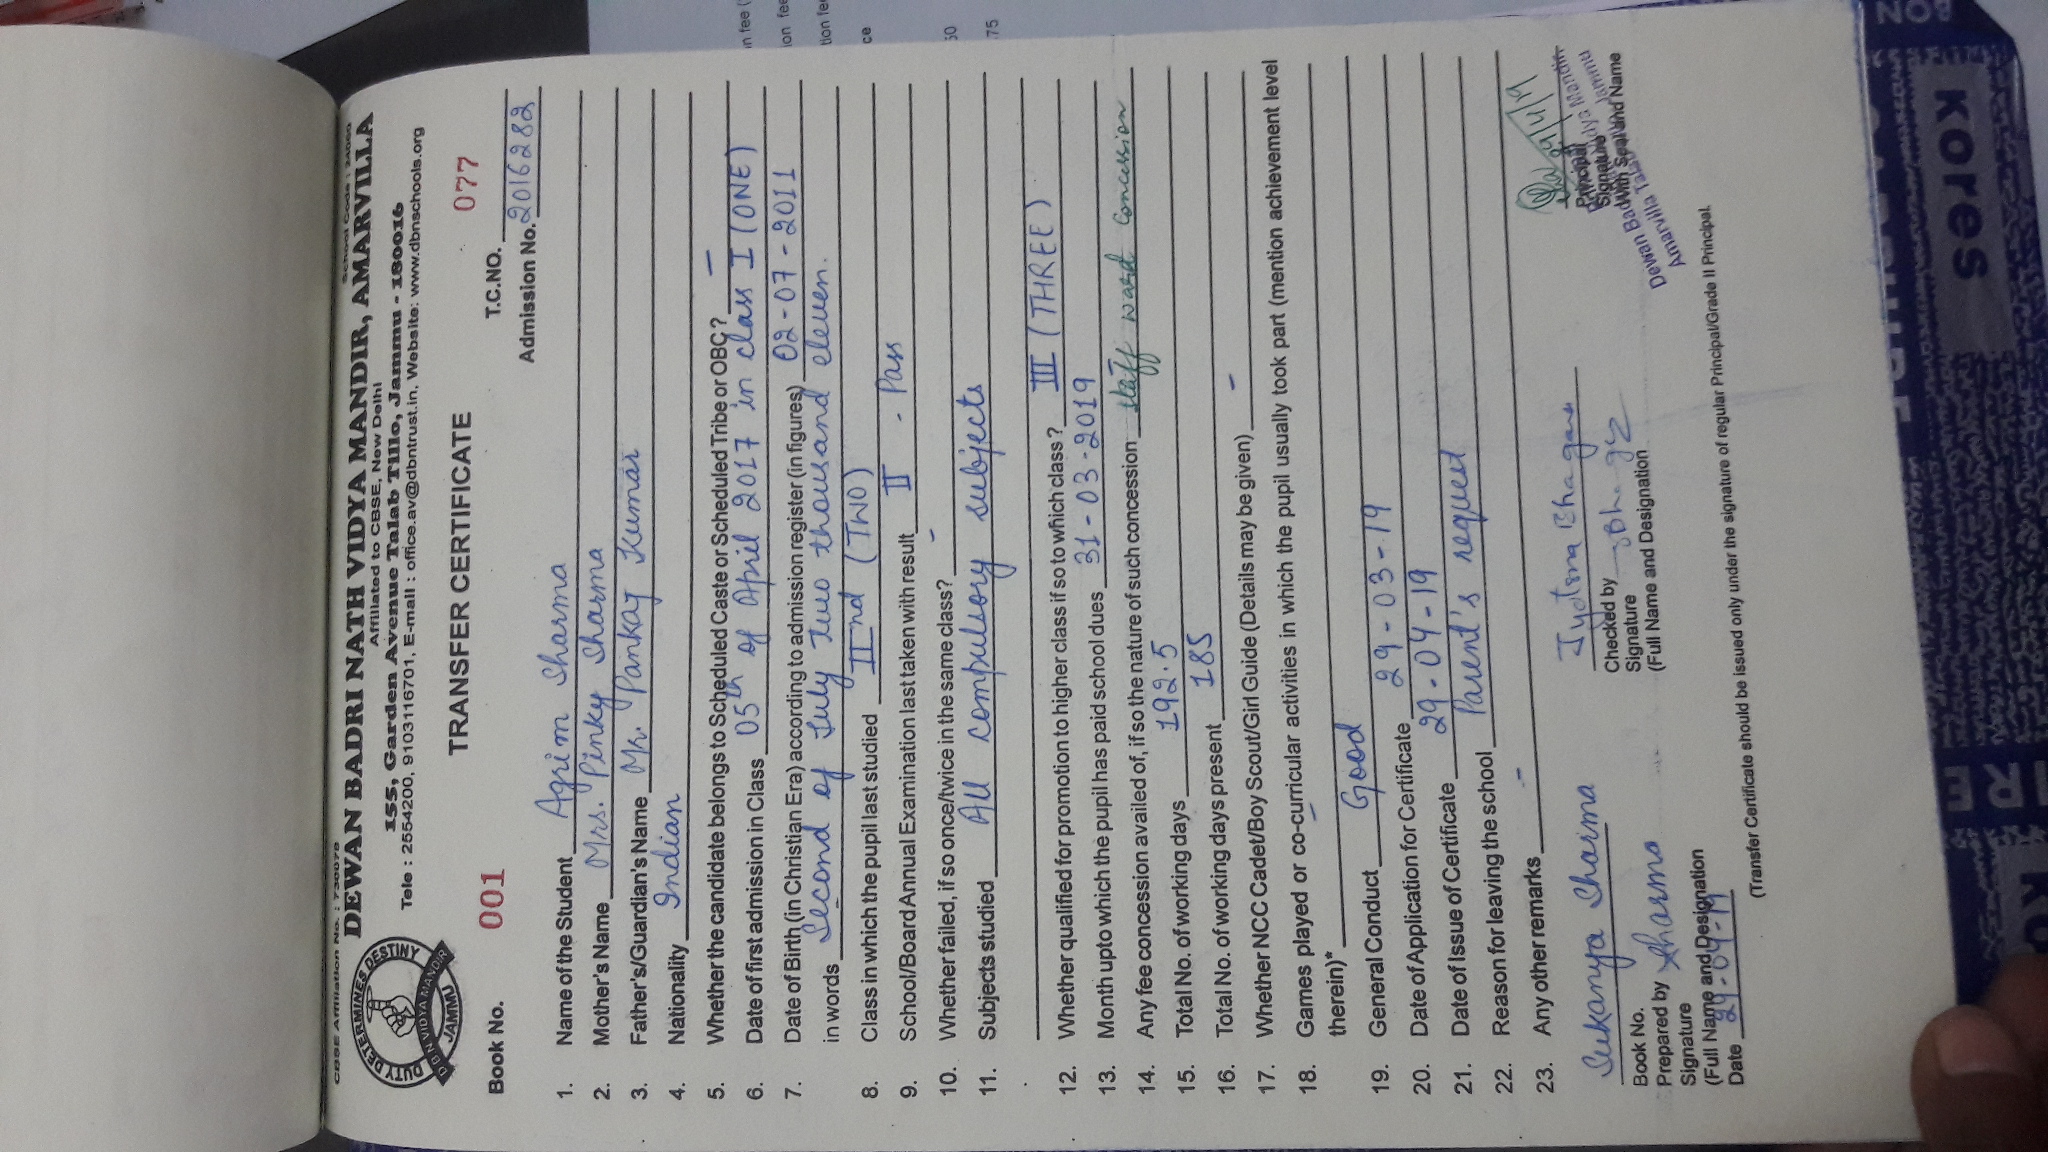 CBSE Affiliation No. : 730078 School Code : 24060
DEWAN BADRI NATH VIDYA MANDIR, AMARVILLA
Affiliated to CBSE, New Delhi
155, Garden Avenue Talab Tillo, Jammu - 180016
Tele : 2554200, 9103116701, E-mail : office.av@dbntrust.in, Website: www.dbnschools.org
DUTY DETERMINES DESTINY
D B N VIDYA MANDIR
JAMMU
TRANSFER CERTIFICATE
Book No. 001 T.C.NO. 077
Admission No. 2016282
1. Name of the Student Agrim Sharma
2. Mother's Name Mrs. Pinky Sharma
3. Father's/Guardian's Name Mr. Pankaj Kumar
4. Nationality Indian
5. Whether the candidate belongs to Scheduled Caste or Scheduled Tribe or OBC? -
6. Date of first admission in Class 05th of April 2017 in class I (ONE)
7. Date of Birth (in Christian Era) according to admission register (in figures) 02-07-2011
in words Second of July two thousand eleven.
8. Class in which the pupil last studied IInd (TWO)
9. School/Board Annual Examination last taken with result II - Pass
10. Whether failed, if so once/twice in the same class? -
11. Subjects studied All compulsory subjects
12. Whether qualified for promotion to higher class if so to which class? III (THREE)
13. Month upto which the pupil has paid school dues 31-03-2019
14. Any fee concession availed of, if so the nature of such concession staff ward concession
15. Total No. of working days 192.5
16. Total No. of working days present 185
17. Whether NCC Cadet/Boy Scout/Girl Guide (Details may be given) -
18. Games played or co-curricular activities in which the pupil usually took part (mention achievement level
therein)* -
19. General Conduct Good
20. Date of Application for Certificate 29-03-19
21. Date of Issue of Certificate 29-04-19
22. Reason for leaving the school Parent's request
23. Any other remarks -
Sukanya Sharma Jyotsna Bhagat
Book No.
Prepared by Sharma Checked by Principal
Signature Signature Signature
(Full Name and Designation (Full Name and Designation With Seal and Name
Date 29-04-19
Amarvilla Jammu
(Transfer Certificate should be issued only under the signature of regular Principal/Grade II Principal.
kores